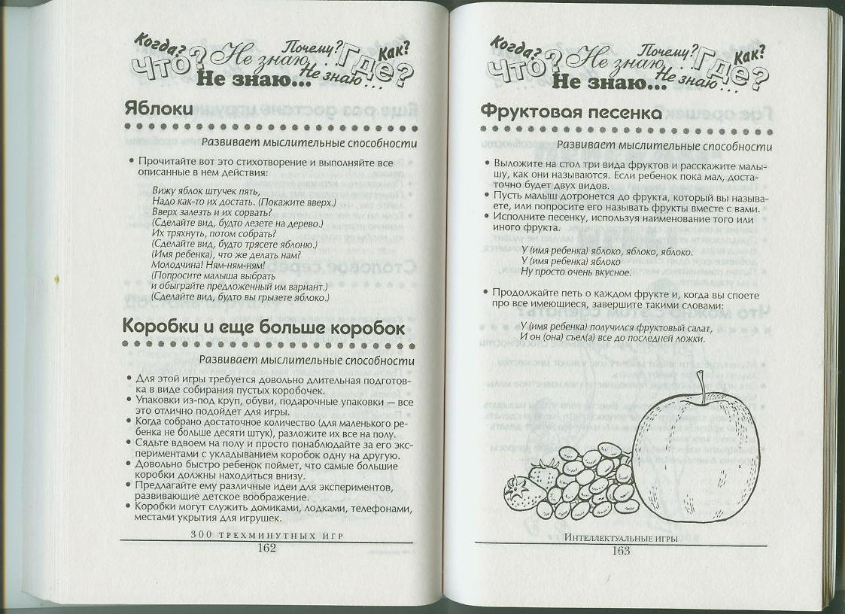 Когда?
Что?
Не знаю...
Почему?
Где?
Как?
Не знаю...
Не знаю...
Яблоки
Развивает мыслительные способности
• Прочитайте вот это стихотворение и выполняйте все
описанные в нем действия:
Вижу яблок штучек пять,
Надо как-то их достать. (Покажите вверх.)
Вверх залезть и их сорвать?
(Сделайте вид, будто лезете на дерево.)
Их тряхнуть, потом собрать?
(Сделайте вид, будто трясете яблоню.)
(Имя ребенка), что же делать нам?
Молодчина! Ням-ням-ням!
(Попросите малыша выбрать
и обыграйте предложенный им вариант.)
(Сделайте вид, будто вы грызете яблоко.)
Коробки и еще больше коробок
Развивает мыслительные способности
• Для этой игры требуется довольно длительная подготов-
ка в виде собирания пустых коробочек.
• Упаковки из-под круп, обуви, подарочные упаковки — все
это отлично подойдет для игры.
• Когда собрано достаточное количество (для маленького ре-
бенка не больше десяти штук), разложите их все на полу.
• Сядьте вдвоем на полу и просто понаблюдайте за его экс-
периментами с укладыванием коробок одну на другую.
• Довольно быстро ребенок поймет, что самые большие
коробки должны находиться внизу.
• Предлагайте ему различные идеи для экспериментов,
развивающие детское воображение.
• Коробки могут служить домиками, лодками, телефонами,
местами укрытия для игрушек.
300 ТРЕХМИНУТНЫХ ИГР
162
Когда?
Что?
Не знаю...
Почему?
Где?
Как?
Не знаю...
Не знаю...
Фруктовая песенка
Развивает мыслительные способности
• Выложите на стол три вида фруктов и расскажите малы-
шу, как они называются. Если ребенок пока мал, доста-
точно будет двух видов.
• Пусть малыш дотронется до фрукта, который вы называ-
ете, или попросите его называть фрукты вместе с вами.
• Исполните песенку, используя наименование того или
иного фрукта.
У (имя ребенка) яблоко, яблоко, яблоко.
У (имя ребенка) яблоко
Ну просто очень вкусное.
• Продолжайте петь о каждом фрукте и, когда вы споете
про все имеющиеся, завершите такими словами:
У (имя ребенка) получился фруктовый салат,
И он (она) съел(а) все до последней ложки.
Интеллектуальные игры
163